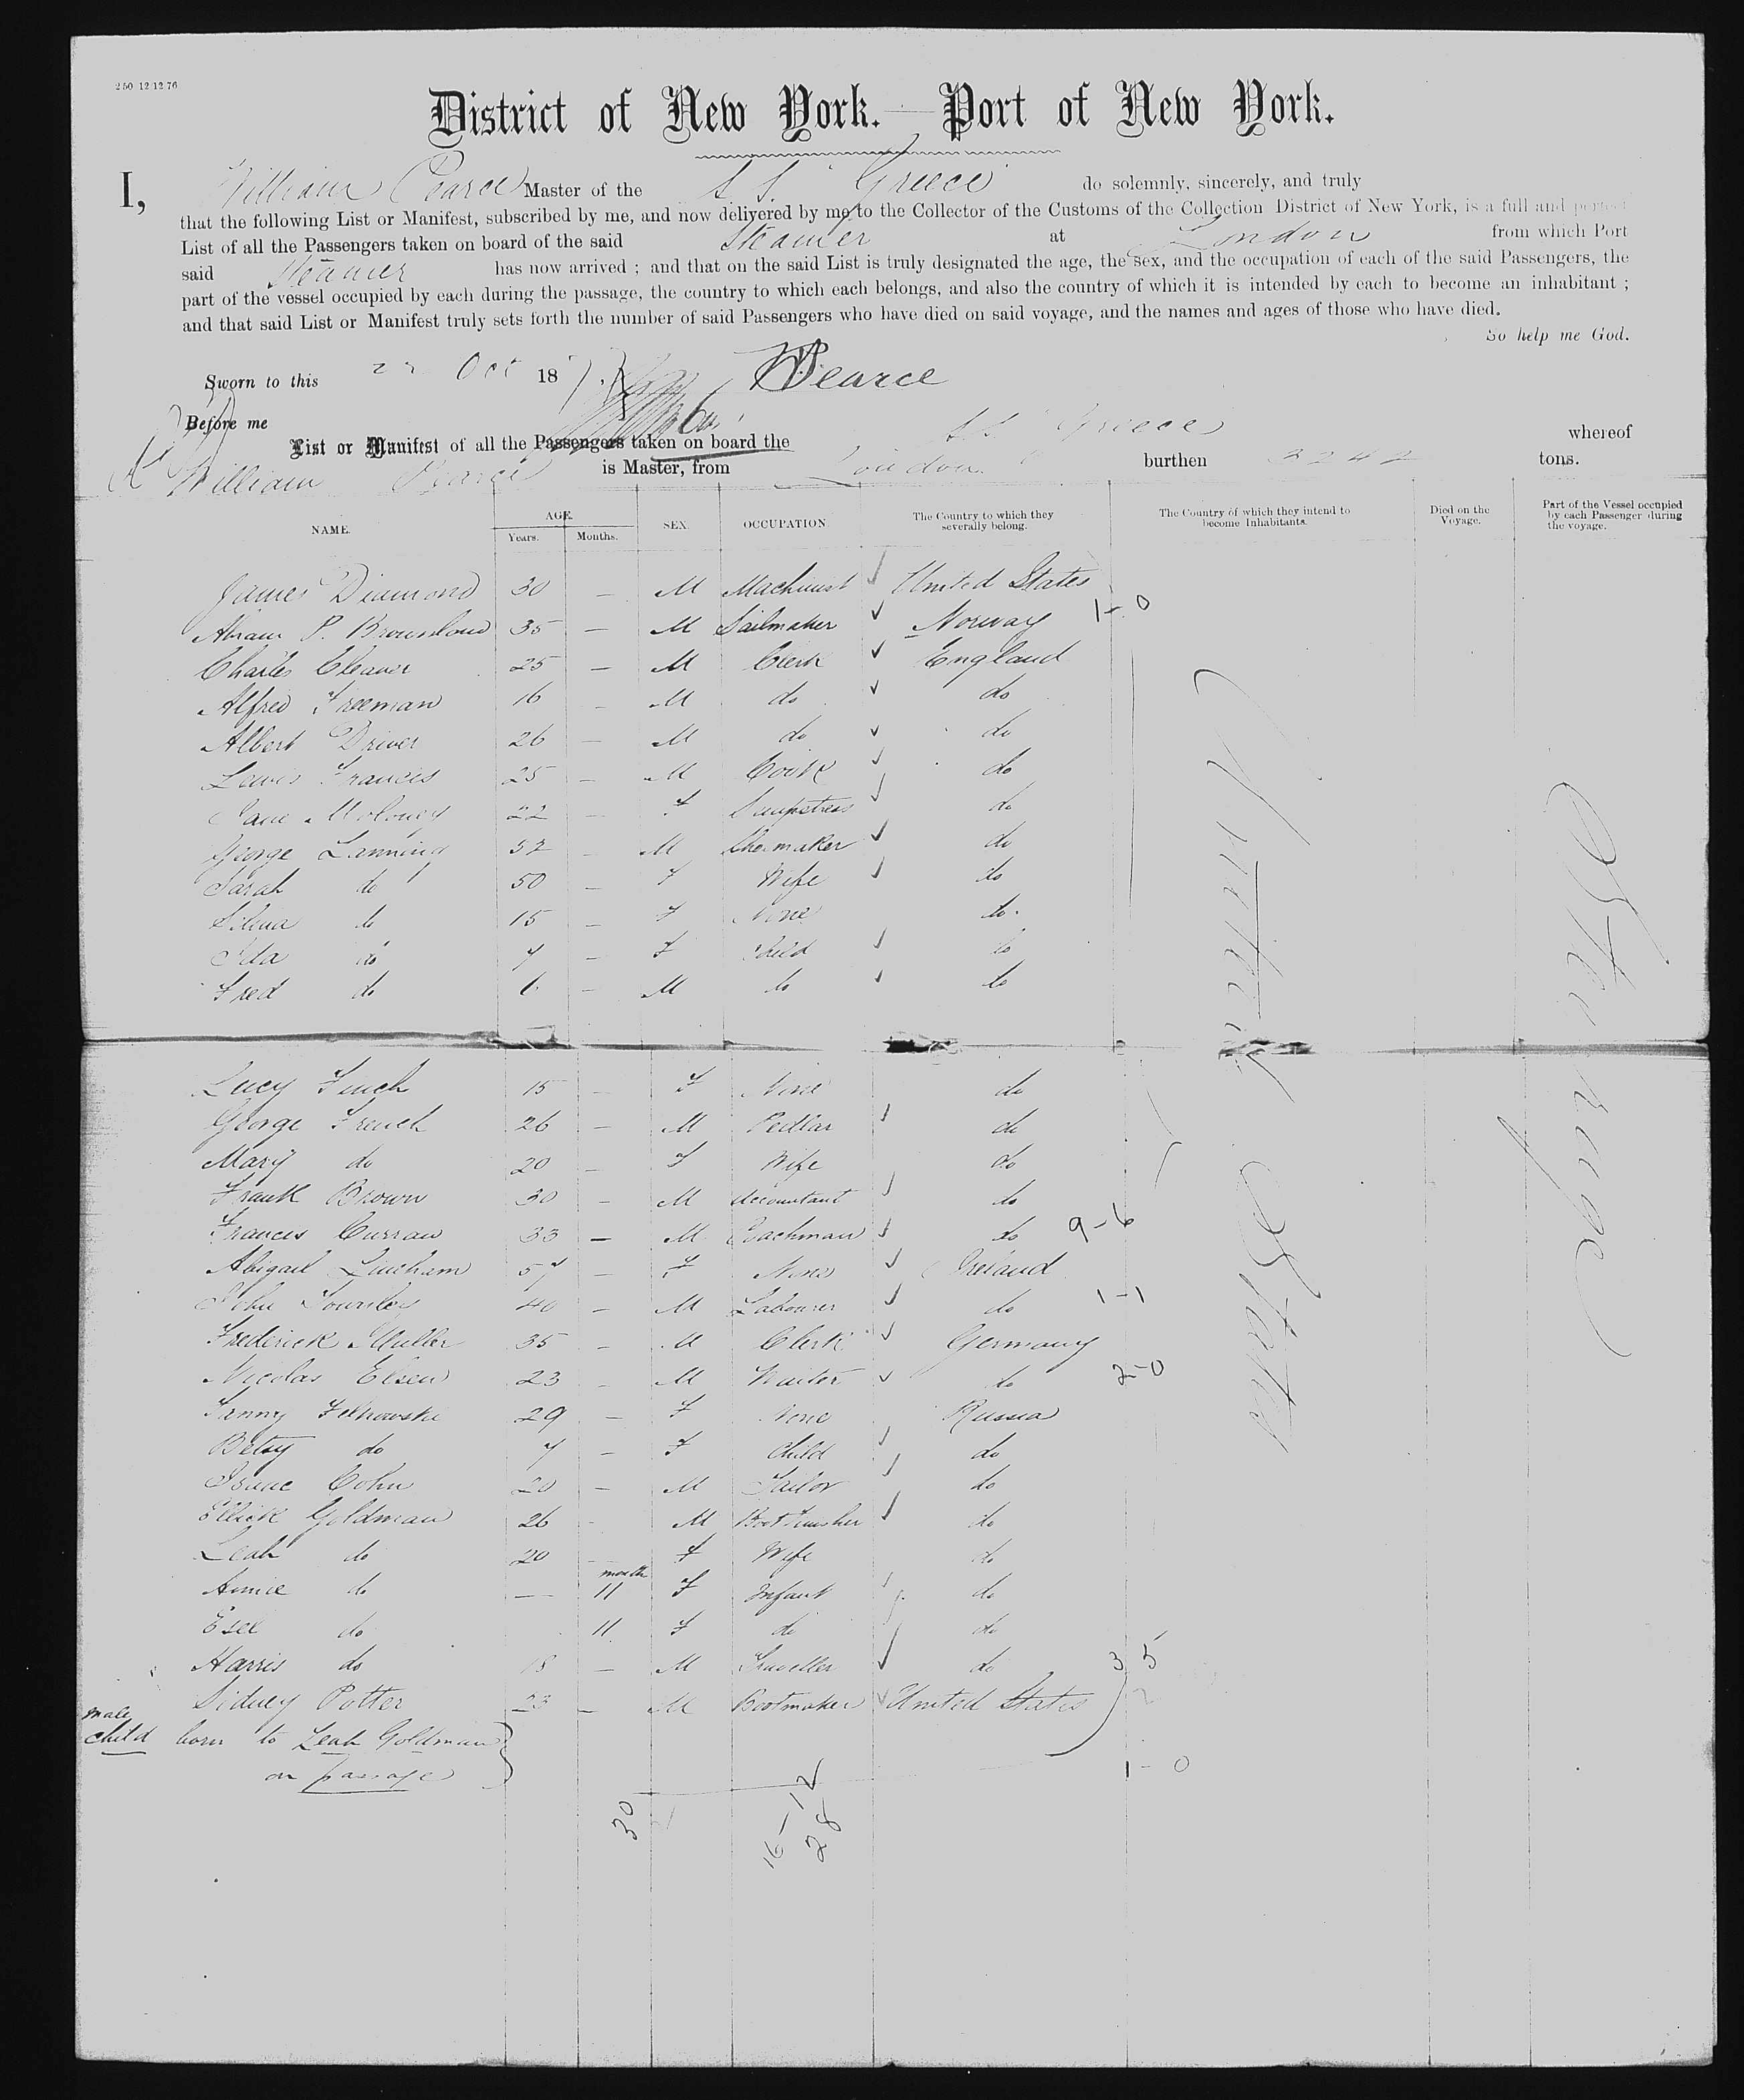 250 12 12 76
District of New York.—Port of New York.
I, William Pearce Master of the S.S. Greece do solemnly, sincerely, and truly
that the following List or Manifest, subscribed by me, and now delivered by me to the Collector of the Customs of the Collection District of New York, is a full and perfect
List of all the Passengers taken on board of the said Steamer at London from which Port
said Steamer has now arrived ; and that on the said List is truly designated the age, the sex, and the occupation of each of the said Passengers, the
part of the vessel occupied by each during the passage, the country to which each belongs, and also the country of which it is intended by each to become an inhabitant ;
and that said List or Manifest truly sets forth the number of said Passengers who have died on said voyage, and the names and ages of those who have died.
So help me God.
Sworn to this Oct 187 W Pearce
Before me
List or Manifest of all the Passengers taken on board the S.S. Greece whereof
William Pearce is Master, from London burthen tons.
NAME. AGE. Years. Months. SEX. OCCUPATION. The Country to which they severally belong. The Country of which they intend to become Inhabitants. Died on the Voyage. Part of the Vessel occupied by each Passenger during the voyage.
James Diamond 30 — M Machinist United States
P. 35 — M Sailmaker Norway 1-0
Charles Cleaver 25 — M Clerk England
Alfred Freeman 16 — M do do
Albert Driver 26 — M do do
Lewis Francis 25 — M Cook do
Jane Moloney 22 — F do
George Lanning 52 — M Shoemaker do
Sarah do 50 — F Wife do
do 15 — F None do
Ida do 7 — F Child do
Fred do 6 — M do do
United States
Steerage
Lucy Finch 15 — F None do
George French 26 — M Pedlar do
Mary do 20 — F Wife do
Frank Brown 30 — M Accountant do
Frances Curran 33 — M Coachman do 9-6
Abigail 57 — F None Ireland
John Townley 40 — M Labourer do 1-1
Frederick Muller 35 — M Clerk Germany
Nicolas Elsen 23 — M Waiter do 2-0
Fanny 29 — F None Russia
Betsy do 7 — F Child do
Isaac Cohn 20 — M Tailor do
Ellick Goldman 26 - M Boot finisher do
Leah do 20 — F Wife do
Annie do — month 11 F Infant do
do 11 F do do
Harris do 18 — M Traveller do 3 5
Sidney Potter 23 — M Bootmaker United States
male
child born to Leah Goldman
on passage 1-0
30 16-12
28